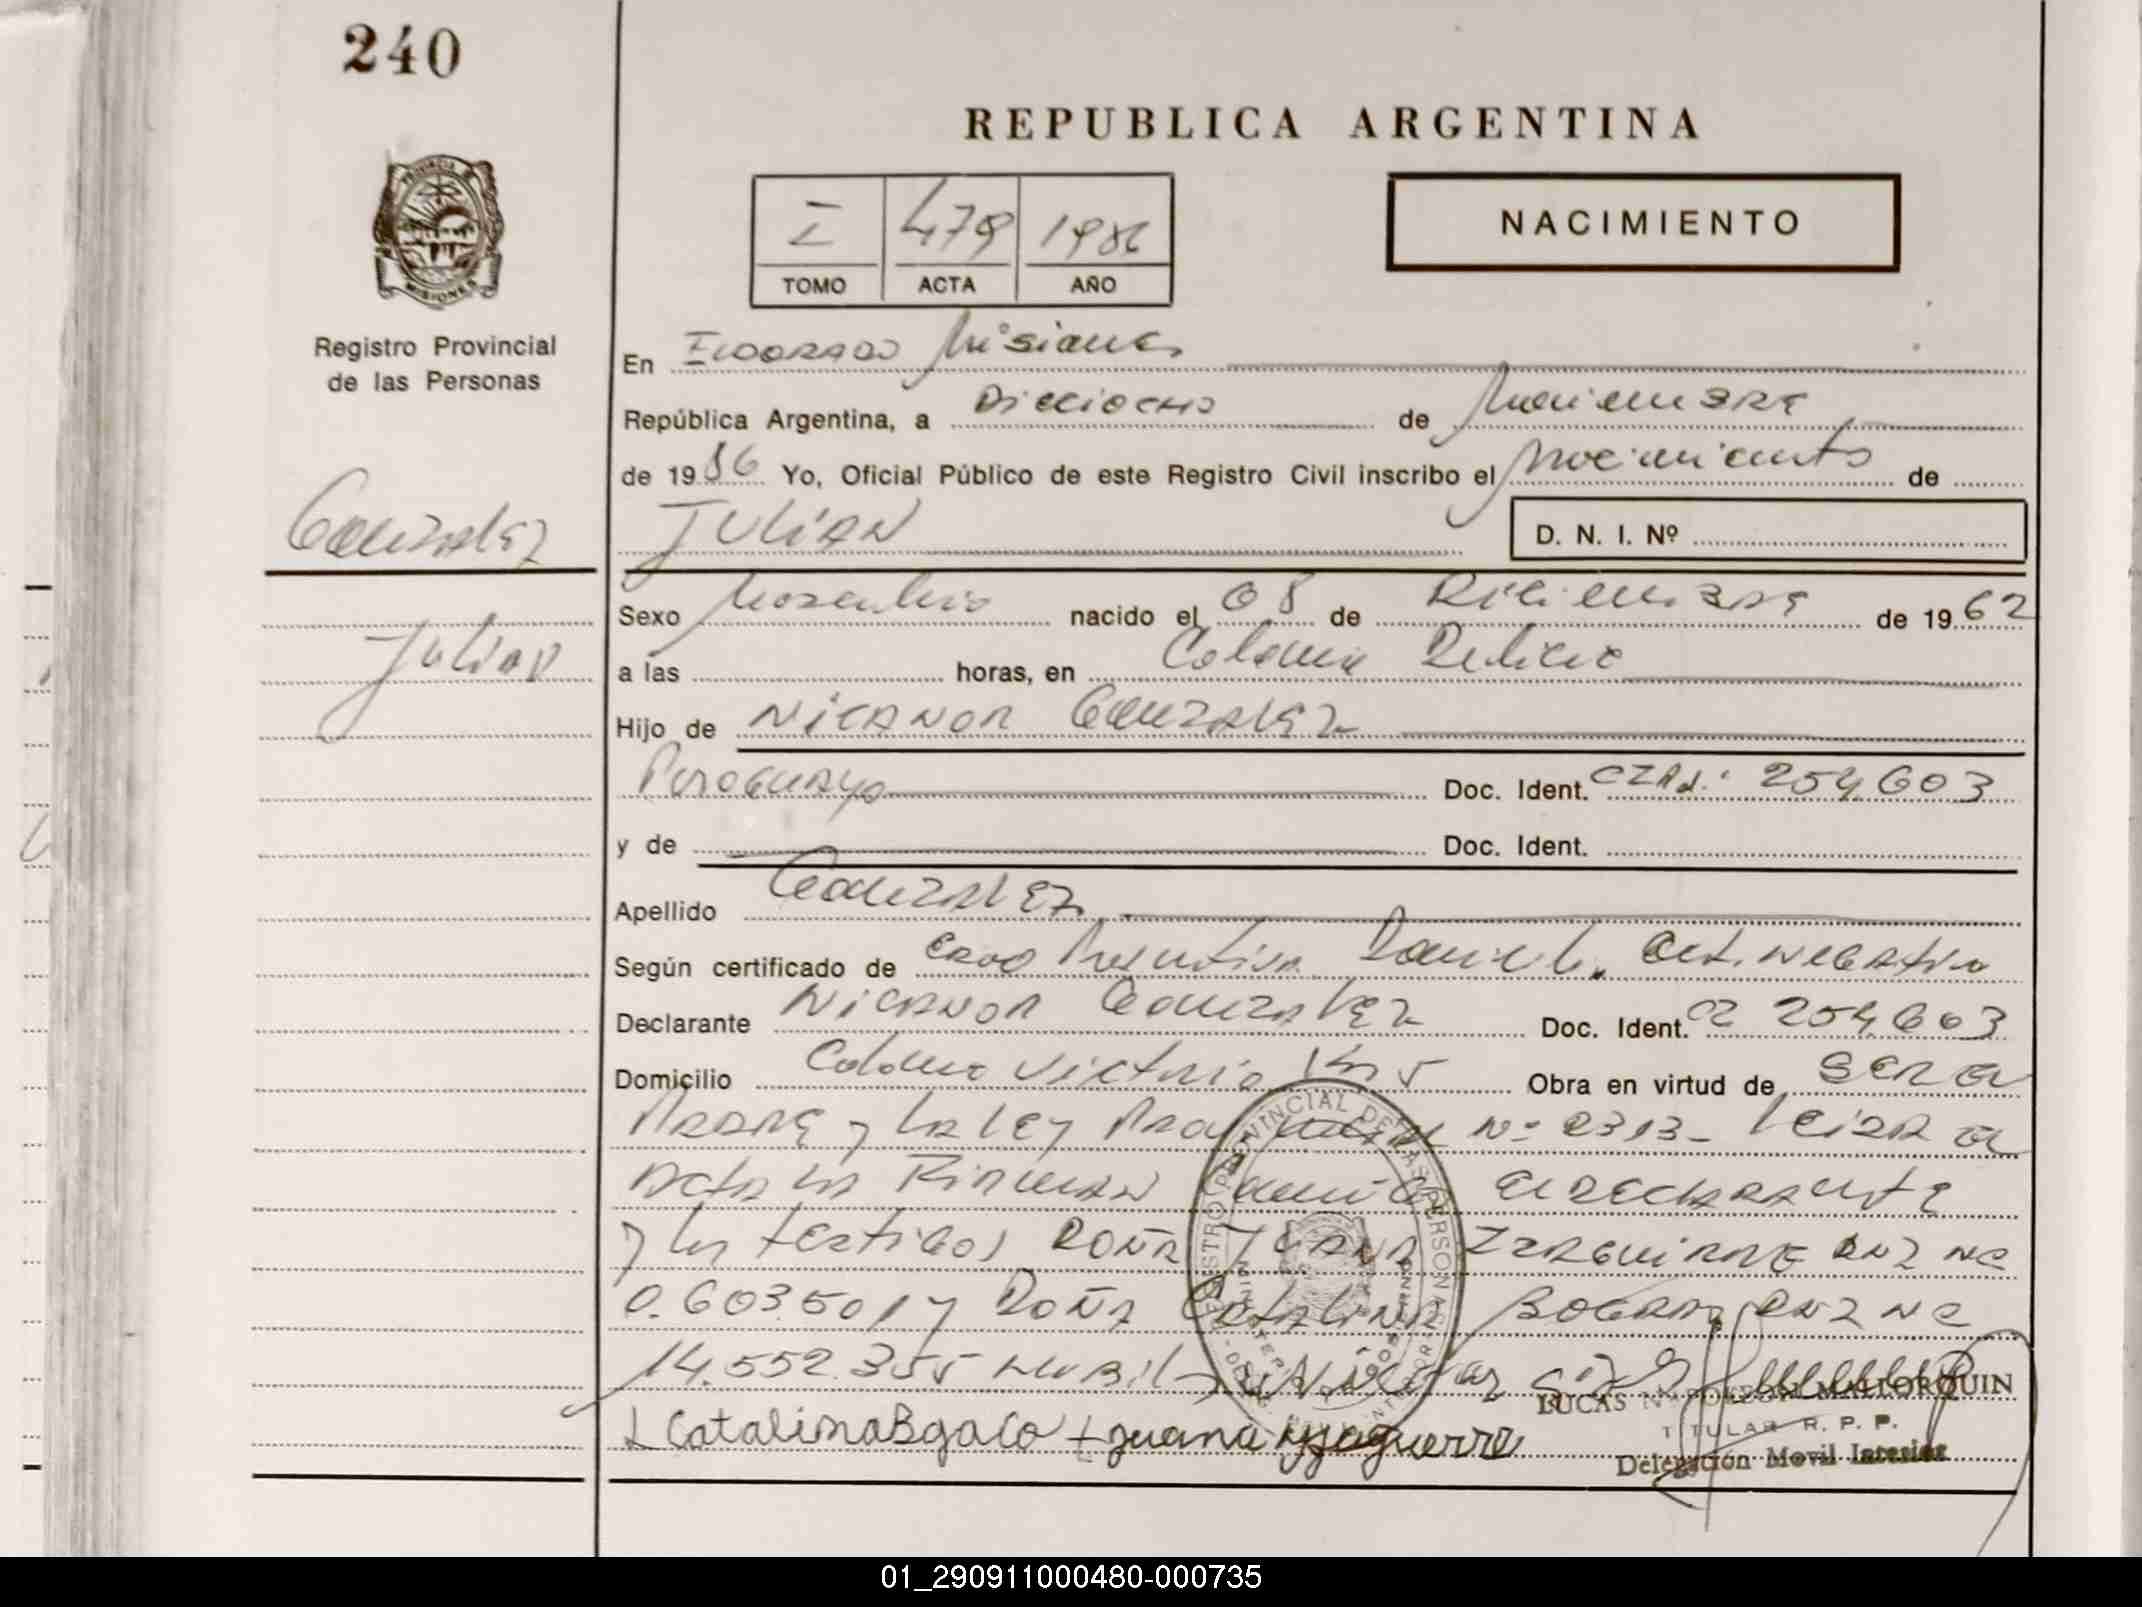 240
REPUBLICA ARGENTINA
PROVINCIA DE
MISIONES
Registro Provincial
de las Personas
I 479 1986
TOMO ACTA AÑO
NACIMIENTO
En ELDORADO Misiones
República Argentina, a Dieciocho de Noviembre
de 1986 Yo, Oficial Público de este Registro Civil inscribo el Nacimiento de
Gonzalez
JULIAN
D. N. I. Nº
Julian
Sexo Masculino nacido el 08 de Diciembre de 1962
a las horas, en Colonia Delicia
Hijo de NICANOR GONZALEZ
Paraguayo Doc. Ident. 254.603
y de Doc. Ident.
Apellido GONZALEZ
Según certificado de
Declarante NICANOR GONZALEZ Doc. Ident. CI 254.603
Domicilio Colonia Victoria Km 5 Obra en virtud de SER EL
PADRE y LA LEY Nº 2313- LEIDA EL
ACTA LA FIRMAN EL DECLARANTE
y los testigos DOÑA JUANA IZAGUIRRE
0.603.501 y DOÑA CATALINA BOGADO
14.552.355
LUCAS MALLORQUIN
TITULAR R. P. P.
Catalina Bgado + Juana
Delegación Movil Interior
01_290911000480-000735